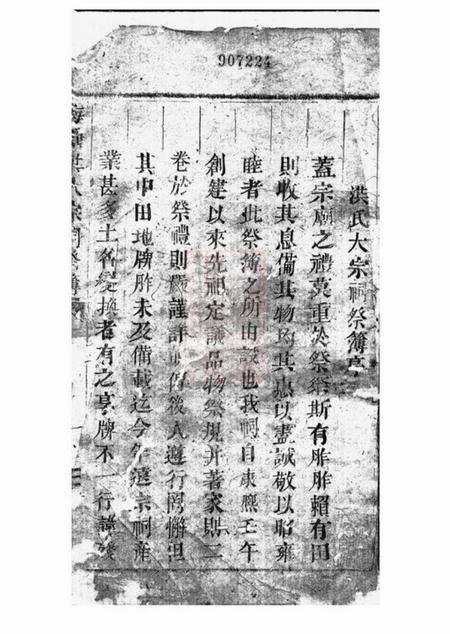 907224
洪氏大宗祠祭簿序
蓋宗廟之禮莫重於祭祭斯有胙胙賴有田
則收其息備其物均其惠以盡誠敬以昭雍
睦者此祭簿之所由設也我祠自康熙壬午
創建以來先祖定議品物祭規并著家則二
卷於祭禮則嚴謹詳 俾後人遵行罔懈但
其中田地牌胙未及備載迄今年遠宗祠產
業甚多土名變換者有之享牌不一行 殘
大宗祠祭簿